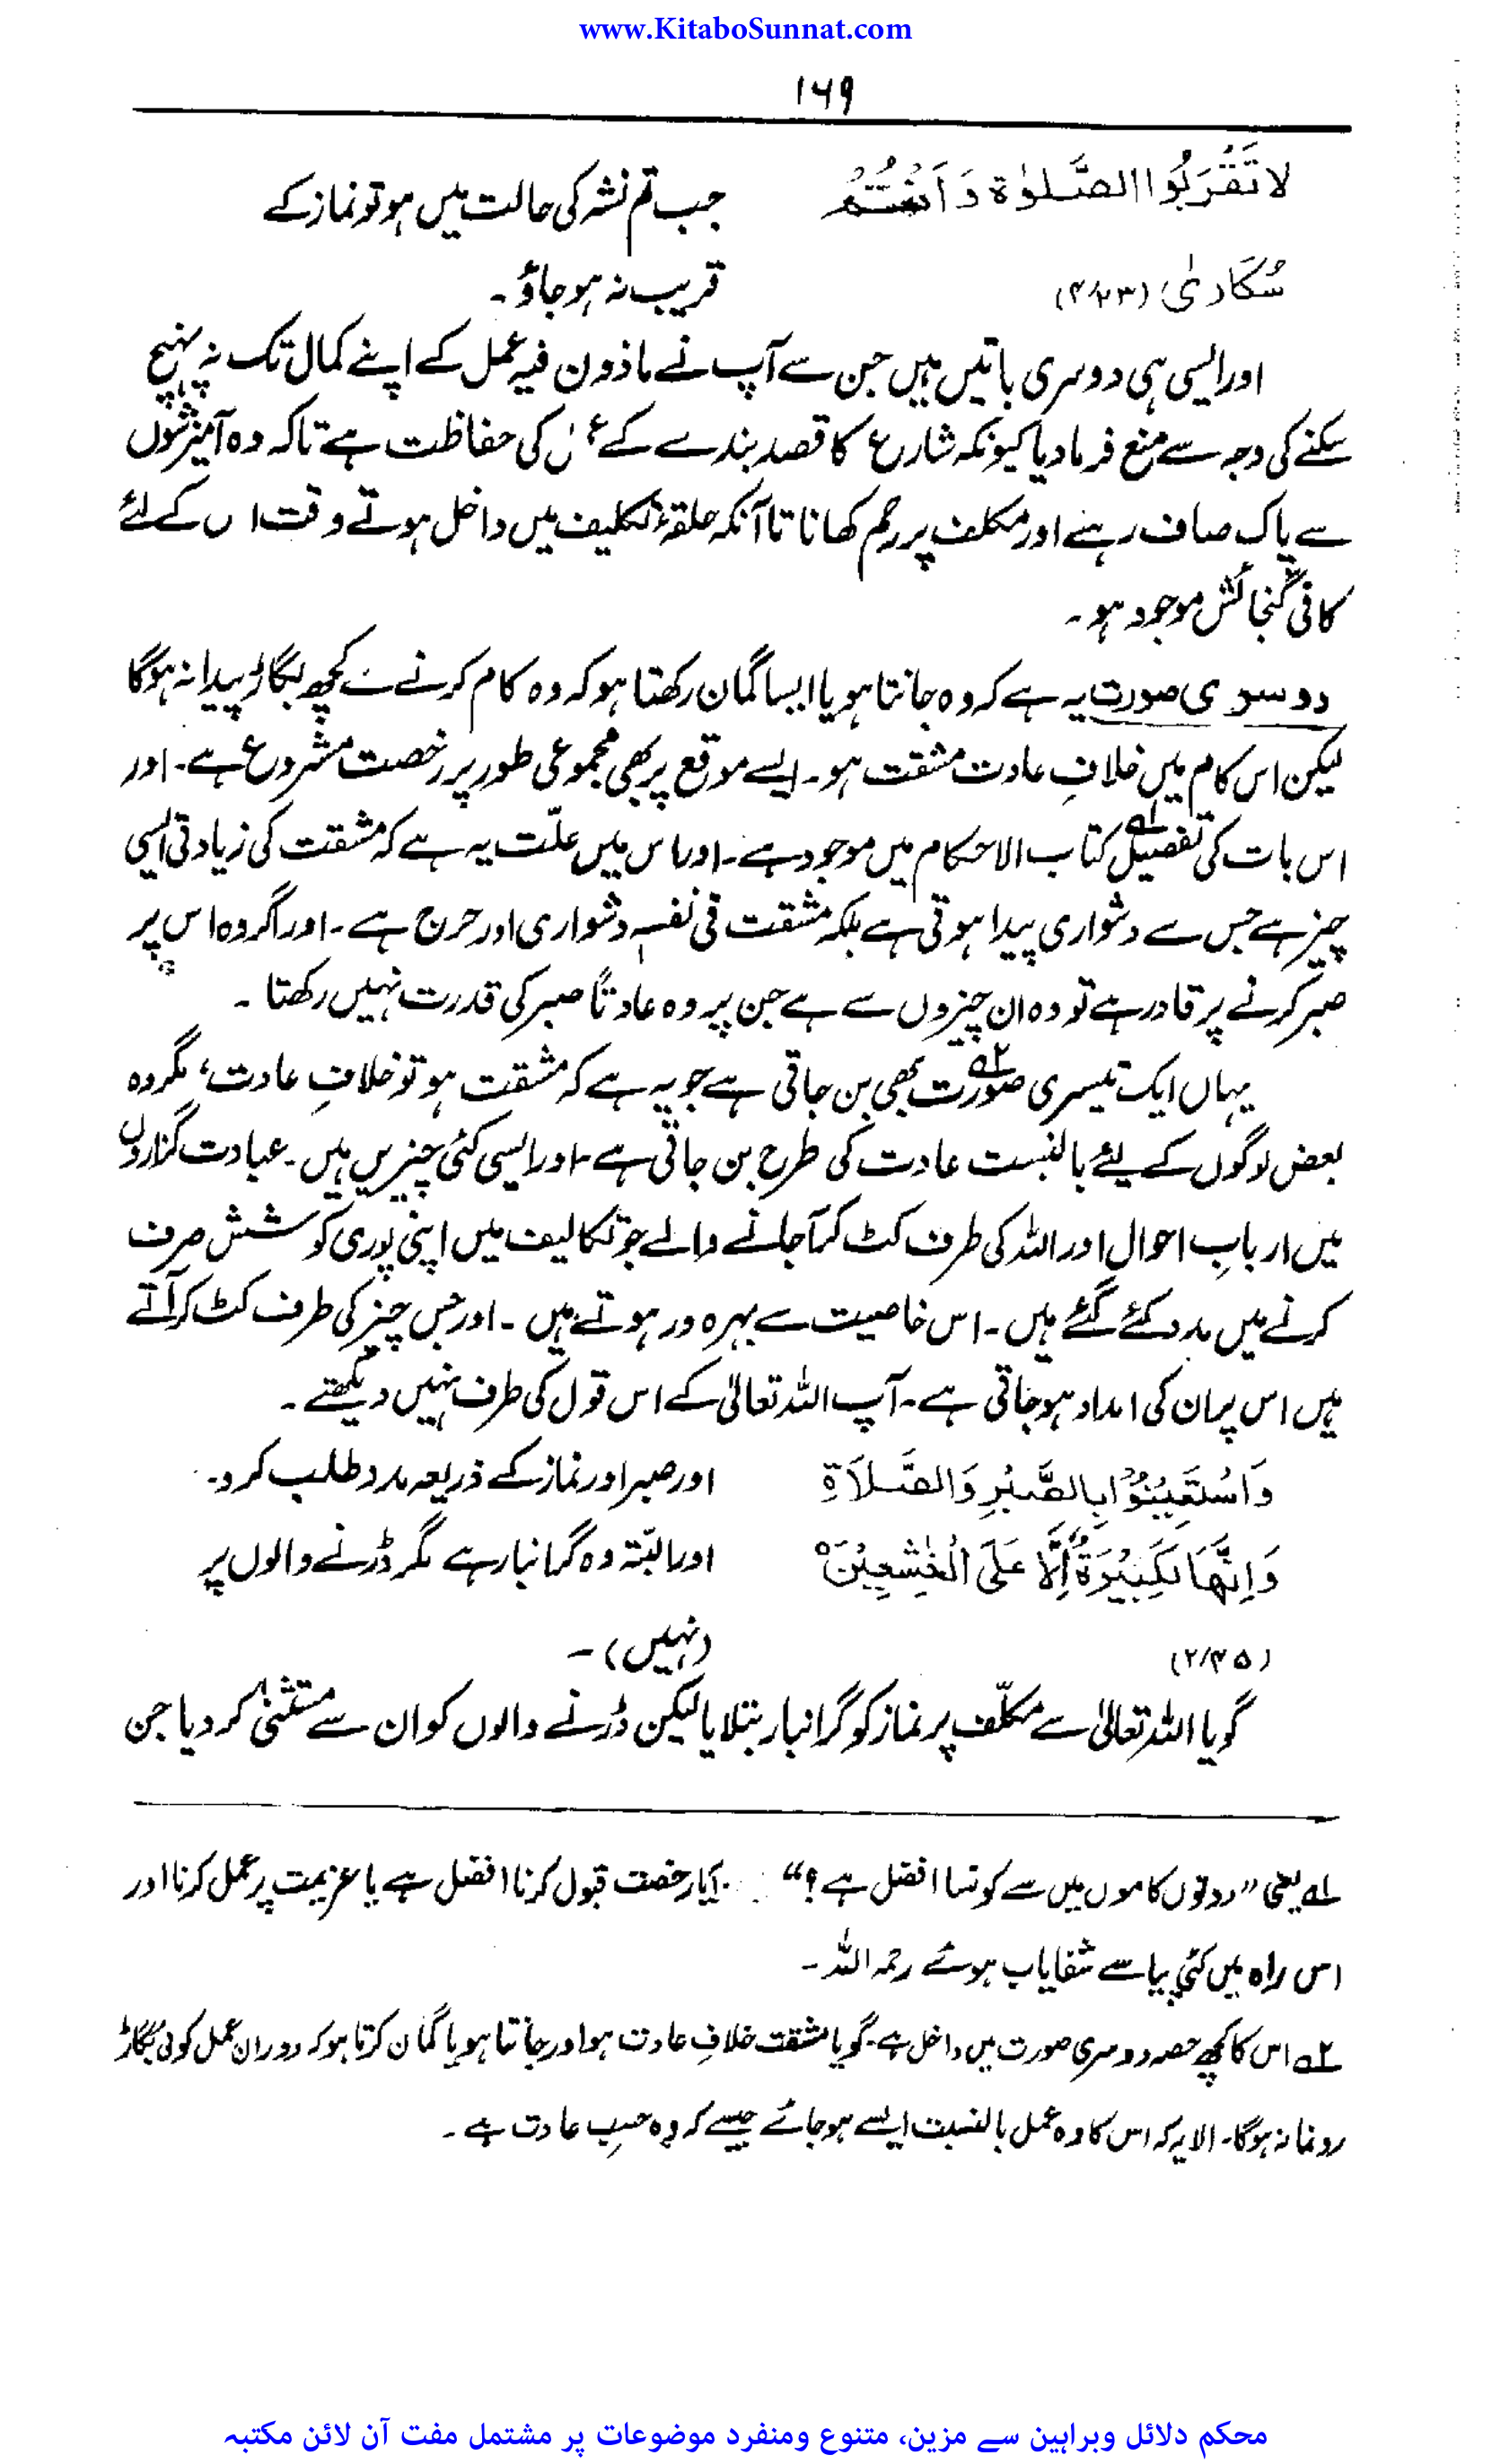 www.KitaboSunnat.com
۱۶۹
لا تَقْرَبُوا الصَّلوٰةَ وَاَنْتُمْ جب تم نشہ کی حالت میں ہو تو نماز کے
سُكَارىٰ (۴/۴۳) قریب نہ ہو جاؤ۔
اور ایسی ہی دوسری باتیں ہیں جن سے آپ نے ماذون فیہ عمل کے اپنے کمال تک نہ پہنچ
سکنے کی وجہ سے منع فرما دیا کیونکہ شارع کا قصد بندے کے کی حفاظت ہے تاکہ وہ آمیزشوں
سے پاک صاف رہنے اور مکلف پر رحم کھانا تا آنکہ حلقۂ تکلیف میں داخل ہوتے وقت اس کے لئے
کافی گنجائش موجود ہو۔
دوسری صورت یہ ہے کہ وہ جانتا ہو یا ایسا گمان رکھتا ہو کہ وہ کام کرنے سے کچھ بگاڑ پیدا نہ ہوگا
لیکن اس کام میں خلافِ عادت مشقت ہو۔ ایسے موقع پر بھی مجموعی طور پر رخصت مشروع ہے۔ اور
اس بات کی تفصیل ؎۱ کتاب الاحکام میں موجود ہے۔ اور اس میں علّت یہ ہے کہ مشقت کی زیادتی ایسی
چیز ہے جس سے دشواری پیدا ہوتی ہے بلکہ مشقت فی نفسہٖ دشواری اور حرج ہے۔ اور اگر وہ اس پر
صبر کرنے پر قادر ہے تو وہ ان چیزوں سے ہے جن پر وہ عادتاً صبر کی قدرت نہیں رکھتا۔
یہاں ایک تیسری صورت ؎۲ بھی بن جاتی ہے جو یہ ہے کہ مشقت ہو تو خلافِ عادت، مگر وہ
بعض لوگوں کے لیئے بالنسبت عادت کی طرح بن جاتی ہے۔ اور ایسی کئی چیزیں ہیں۔ عبادت گزاروں
میں اربابِ احوال اور اللہ کی طرف کٹ کر آ جانے والے جو تکالیف میں اپنی پوری کوشش صرف
کرنے میں مدد کئے گئے ہیں۔ اس خاصیت سے بہرہ ور ہوتے ہیں۔ اور جس چیز کی طرف کٹ کر آتے
ہیں اس پر ان کی امداد ہو جاتی ہے۔ آپ اللہ تعالیٰ کے اس قول کی طرف نہیں دیکھتے۔
وَاسْتَعِيْنُوْا بِالصَّبْرِ وَالصَّلاَةِ اور صبر اور نماز کے ذریعہ مدد طلب کرو۔
وَاِنَّهَا لَكَبِيْرَةٌ اِلَّا عَلَى الْخٰشِعِيْنَ اور البتّہ وہ گرانبار ہے مگر ڈرنے والوں پر
(۲/۴۵) (نہیں)۔
گویا اللہ تعالیٰ سے مکلّف پر نماز کو گرانبار بتلایا لیکن ڈرنے والوں کو ان سے مستثنیٰ کر دیا جن
؎۱ یعنی ”دونوں کاموں میں سے کونسا افضل ہے؟“ آیا رخصت قبول کرنا افضل ہے یا عزیمت پر عمل کرنا اور
اس راہ میں کئی پیاسے شفایاب ہوئے رحمہ اللہ۔
؎۲ اس کا کچھ حصہ دوسری صورت میں داخل ہے۔ گویا مشقت خلافِ عادت ہو اور جانتا ہو یا گمان کرتا ہو کہ دوران عمل کوئی بگاڑ
رونما نہ ہوگا۔ الا یہ کہ اس کا وہ عمل بالنسبت ایسے ہو جائے جیسے کہ وہ حسبِ عادت ہے۔
محکم دلائل وبراہین سے مزین، متنوع ومنفرد موضوعات پر مشتمل مفت آن لائن مکتبہ